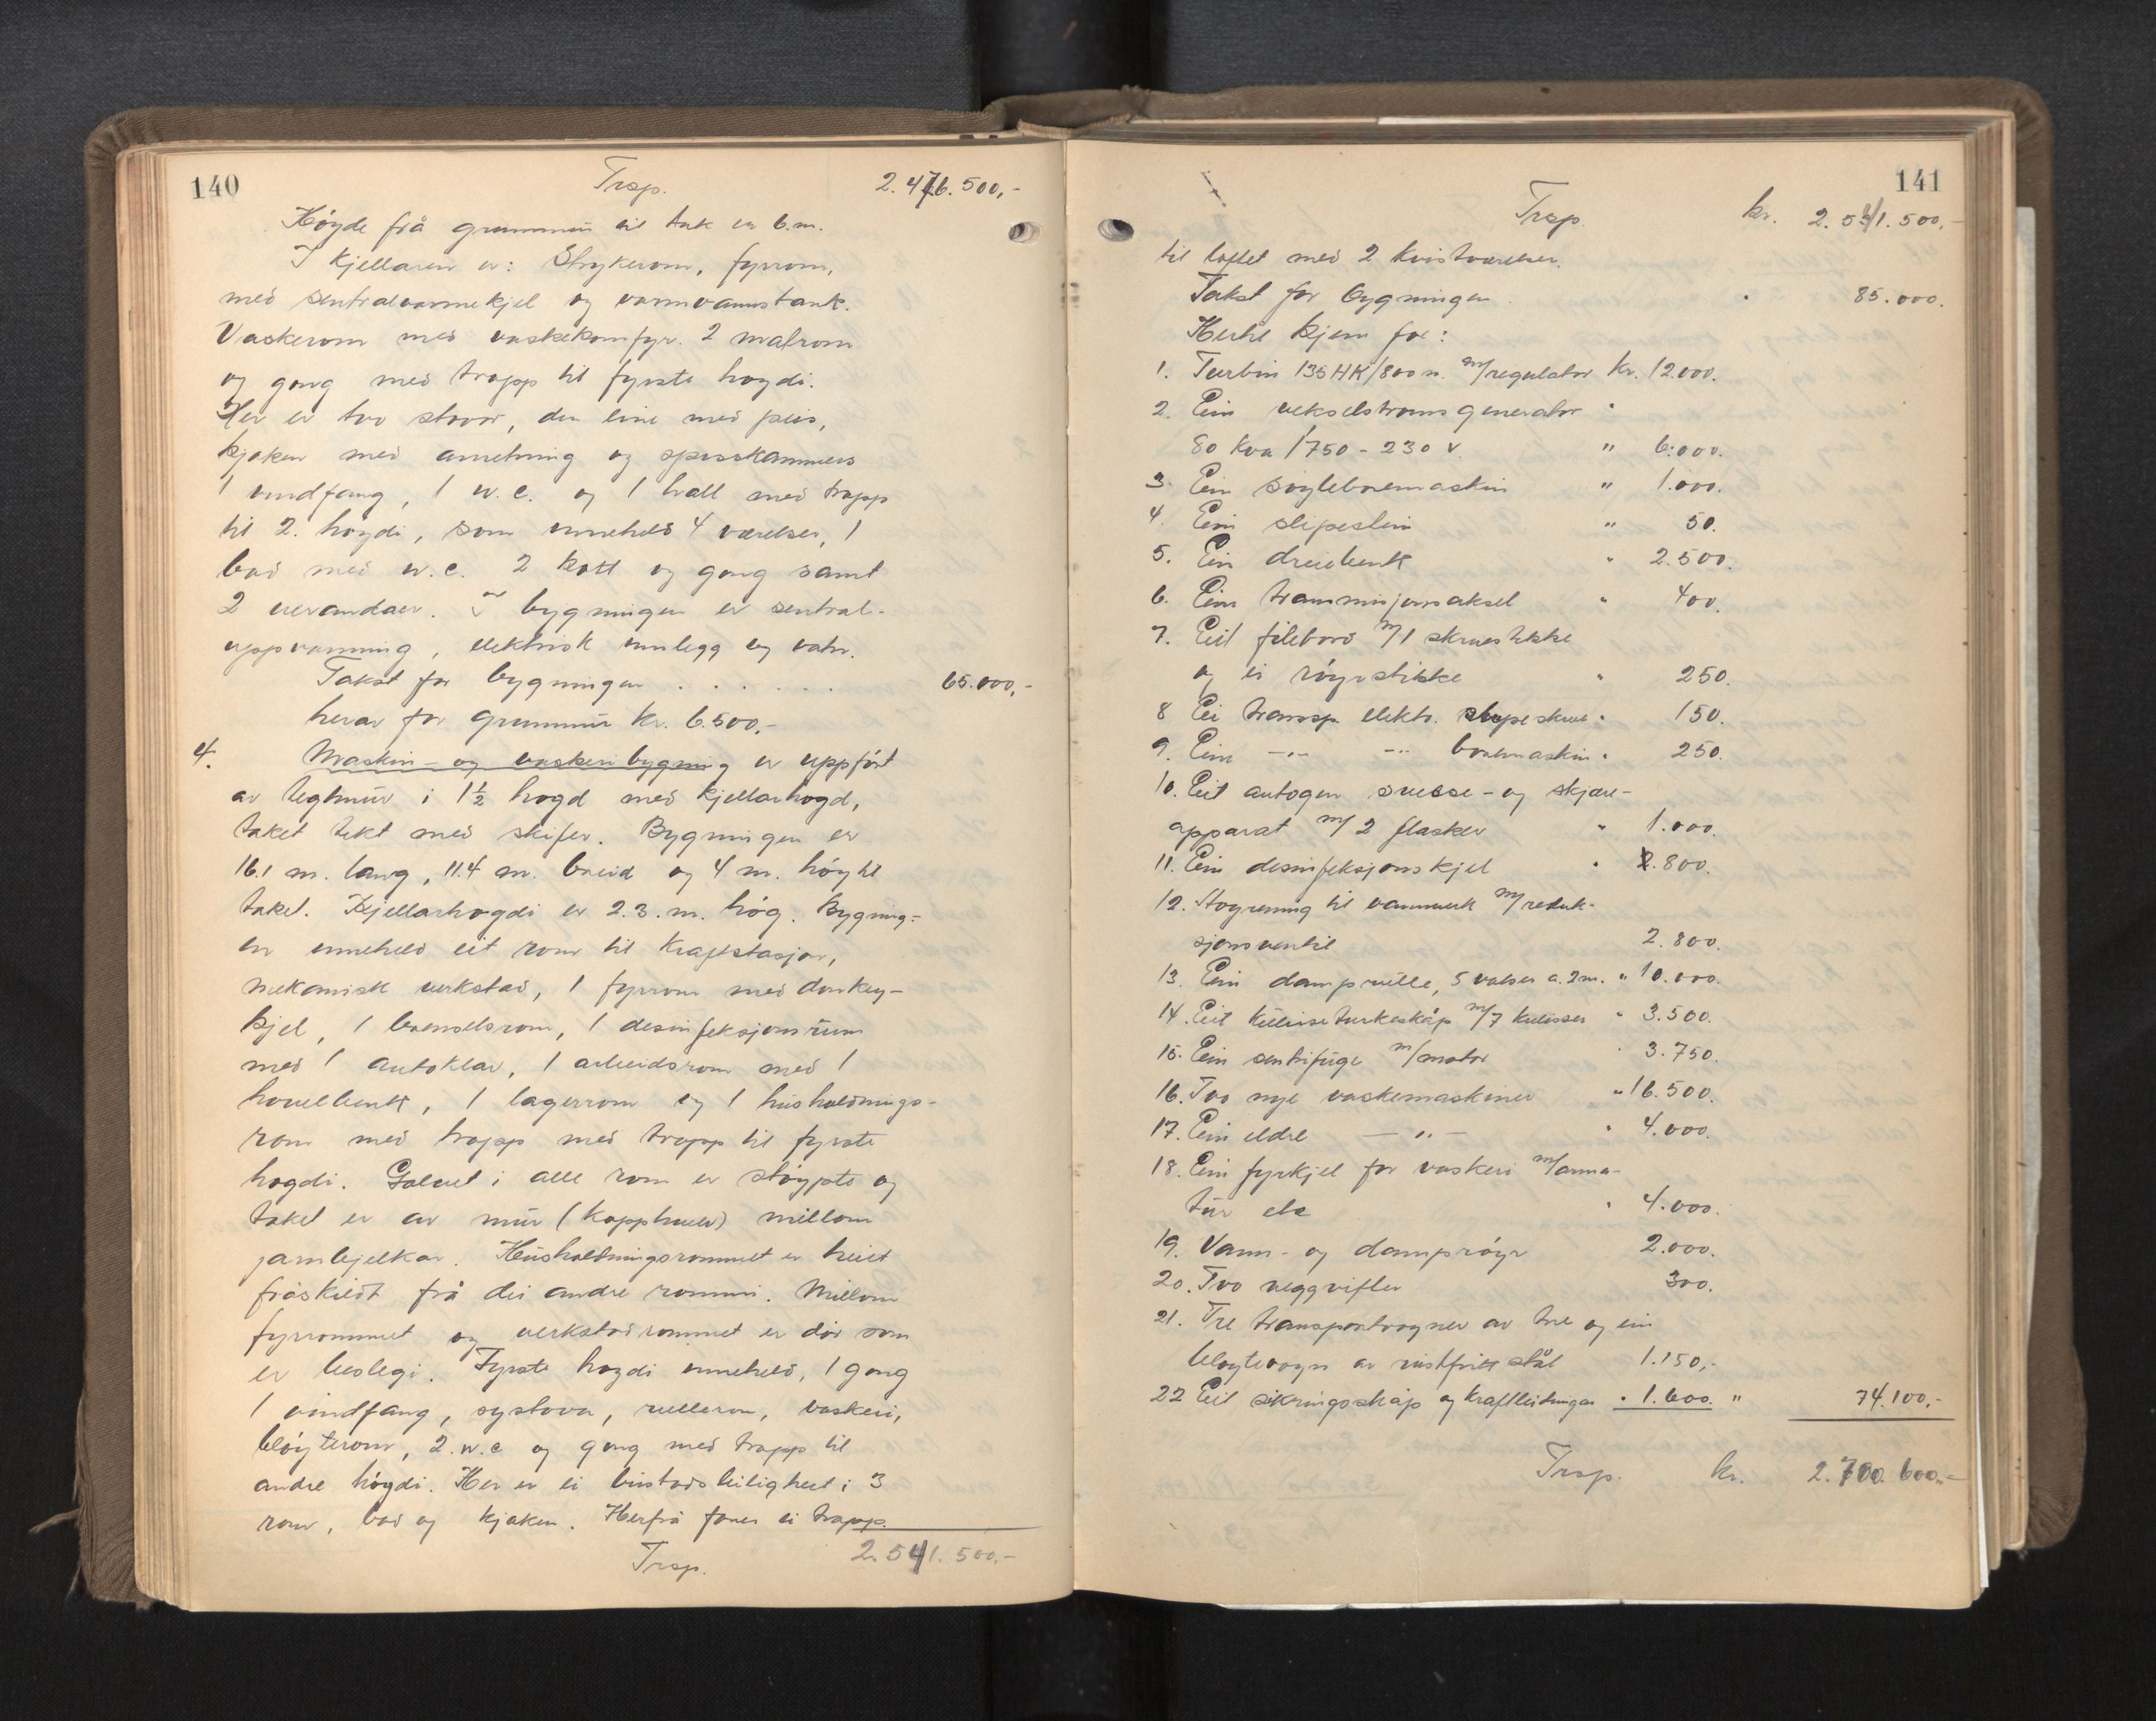 140
Trsp. 2.476.500,-
Høyde frå grunnmur til tak er 6.m.
I kjellaren er: Strykerom, fyrrom,
med sentralvarmekjel og varmvannstank.
Vaskerom med vaskekomfyr. 2 matrom
og gang med trapp til fyrste høgdi.
Her er tvo stovor, den eine med peis,
kjøken med anretning og spiskammers
1 vindfang, 1 w.c. og 1 hall med trapp
til 2. høgdi, som inneheld 4 værelser, 1
bad med w.c. 2 kott og gang samt
2 verandaer. I bygningen er sentral-
uppvarming, elektrisk innlegg og vatn.
Takst for bygningen . . . . . . 65.000,-
herav for grunnmur kr. 6.500,-
4. Maskin- og vaskeribygning er uppført
av teglmur i 1½ høgd med kjellarhøgd,
taket tekt med skifer. Bygningen er
16.1 m. lang, 11.4 m. breid og 4 m. høg til
taket. Kjellarhøgdi er 2.3. m. høg. Bygning-
en inneheld eit rom til kraftstasjon,
mekanisk verkstad, 1 fyrrom med donkey-
kjel, 1 brenselsrom, 1 desinfeksjonsrum
med 1 autoklav, 1 arbeidsrom med 1
høvelbenk, 1 lagerrom og 1 husholdnings-
rom med trapp med trapp til fyrste
høgdi. Golvet i alle rom er støypte og
taket er av mur (kapphvelv) millom
jarnbjelkar. Husholdningsrommet er heilt
fråskildt frå dei andre rommi. Millom
fyrrommet og verkstadrommet er dør som
er beslegi. Fyrste høgdi inneheld, 1 gang
1 vindfang, systova, rullerom, vaskeri,
bløyterom, 2. w.c og gang med trapp til
andre høgdi. Her er ei bustadsleilighet i 3
rom, bad og kjøken. Herfrå fører ei trapp
Trsp. 2.541.500.-
141
Trsp. kr. 2.541.500,-
til loftet med 2 kvistværelser.
Takst for bygningen . . 85.000.
Hertil kjem for:
1. Turbin 135 HK/800 n. m/regulator kr. 12.000.
2. Ein vekselstrømsgenerator "
80 Kva /750 - 230 v. " 6.000.
3. Ein søyleboremaskin " 1.000.
4. Ein slipestein " 50.
5. Ein dreiebenk " 2.500.
6. Ein transmisjonsaksel " 400.
7. Eit filebord m/1 skruestikke
og ei røyrstikke " 250.
8 Ei transp. elektr. slipeskive " 150.
9. Ein -"- -"- boremaskin " 250.
10. Eit autogen sveise- og skjære-
apparat m/ 2 flasker " 1.000.
11. Ein desinfeksjonskjel " 2.800.
12. Avgrening til vannverk m/reduk-
sjonsventil 2.800.
13. Ein damprulle, 5 valser a. 2m. " 10.000.
14. Eit kulisseturkeskåp m/7 kulisser " 3.500.
15. Ein sentrifuge m/motor " 3.750.
16. Tvo nye vaskemaskiner " 16.500.
17. Ein eldre -"- " 4.000.
18. Ein fyrkjel for vaskeri m/arma-
tur etc " 4.000.
19. Vann- og damprøyr 2.000.
20. Tvo veggvifter 300.
21. Tre transportvogner av tre og ein
bløytevogn av rustfritt stål 1.150,-
22 Eit sikringsskåp og kraftleidningar " 1.600. " 74.100,-
Trsp. kr. 2.700.600,-